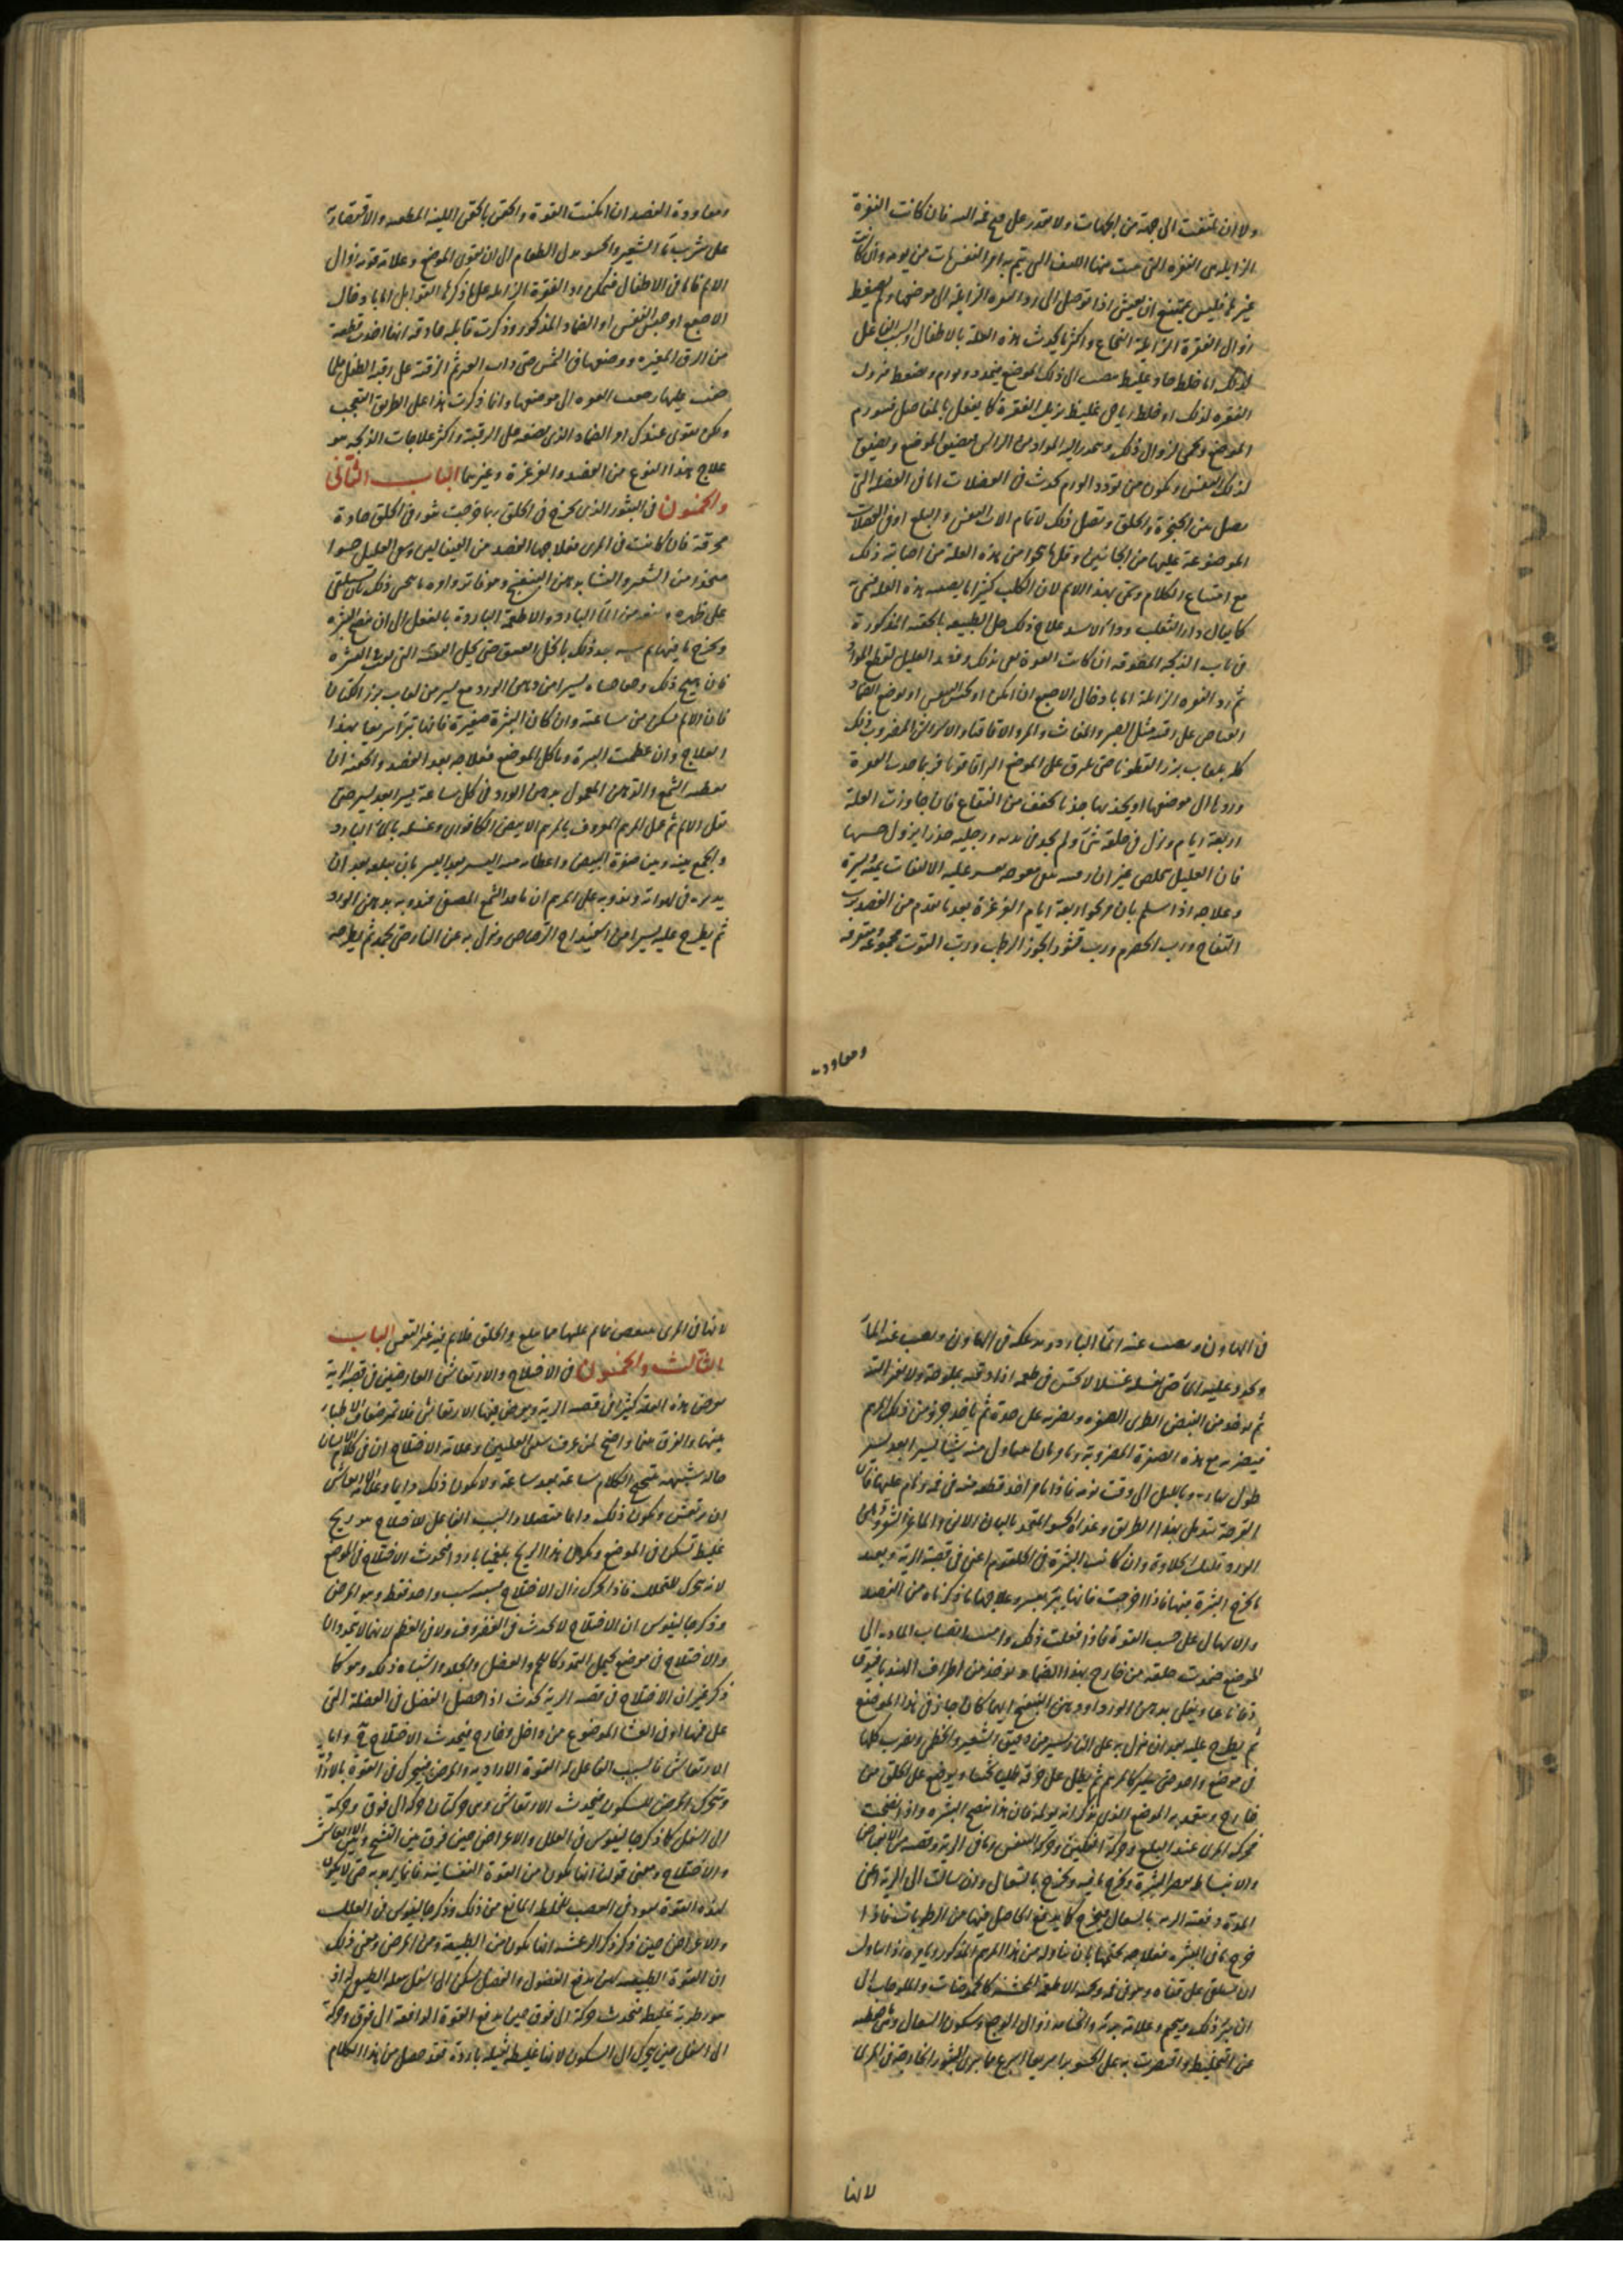 ولا ان يلتفت الى جهة من الجهات ولا يقدر على فتح فمه البتة فان كانت الفقرة
الزايلة هى الفقرة التى منها العصب الذى يتم به امر التنفس مات من يومه وان كانت
غيرها فليس يمتنع ان يعيش اذا توصل الى رد الفقرة الزايلة الى موضعها ولم يضغط
زوال الفقرة الزايلة النخاع واكثر ما يحدث هذه العلة بالاطفال والسبب الفاعل
لذلك اما خلط حاد غليظ ينصب الى ذلك الموضع فيتمدد ويورم ويضغط فيزول
الفقرة لذلك او خلط رياحى غليظ يزيل الفقرة كما يفعل بالمفاصل فيتورم
الموضع ويحمى لزوال ذلك وينحدر اليه المواد من الراس فيضيق الموضع ويضيق
لذلك التنفس ويكون من تردد الورم يحدث فى العضلات اما فى العضلة التى
تصل بين الحنجرة والحلق وتصل ذلك لاتمام الات التنفس والبلع او فى العضلات
الموضوعة عليها من الجانبين وقل ما ينجوا من هذه العلة من اصابته ذلك
مع امتناع الكلام وسمى بهذا الاسم لان الكلب كثيرا ما يصيبه هذه العلة فسمى
كما يقال داء الثعلب وداء الاسد علاج ذلك حل الطبيعة بالحقنة المذكورة
فى باب الذبحة المطلقة ان كانت القوة تفى بذلك وفصد العليل لقطع المواد
ثم رد الفقرة الزايلة اما بادخال الاصبع ان امكن او بحبس النفس او بوضع الضماد
القابض على رقبته مثل الصبر والمغاث والمر والاقاقيا والاشراس المضروب ذلك
كله بلعاب بزر القطونا حتى يلزق على الموضع الزاقا قويا فربما جذب الفقرة
وردها الى موضعها او يجذبها جذبا يخفف عن النخاع فان جاوزت العلة
اربعة ايام ونزل فى حلقه شىء ولم يجد فى يديه ورجليه خدرا يزول حسها
فان العليل يتخلص غير ان رقبته تبقى معوجة يعسر عليه الالتفات يمنة ويسرة
وعلاجه اذا سلم بان مر نحو اربعة ايام الغرغرة بعد ما تقدم من الفصد برب
التفاح ورب الحصرم ورب قشور الجوز الرطب ورب التوت مجموعة متفرقة
ومعاودة
ومعاودة الفصد ان امكنت القوة والحقن بالحقن اللينة المطفية والاقتصار به
على شرب ماء الشعير والحسو بدل الطعام الى ان يقوى الموضع وعلامة قوته زوال
الالم فاما فى الاطفال فيمكن رد الفقرة الزايلة على ما ذكرنا القوابل اما بادخال
الاصبع او حبس النفس او الضماد المذكور وذكرت قابلة حاذقة انها اخذت قطعة
من الزق المغيره ووضعتها فى الشمس حتى ذاب القير ثم الزقته على رقبة الطفل فلما
جف عليها رجعت الفقرة الى موضعها وانما ذكرت هذا على طريق التعجب
ولكن يقوى عندك امر الضماد الذى يضعه على الرقبة واكثر علاجات الذبحة هو
علاج هذا النوع من الفصد والغرغرة وغيرهما الباب الثانى
والخمسون فى البثور الذى يخرج فى الحلق ربما خرجت بثور فى الحلق حادة
محرقة فان كانت فى المرى فعلاجها الفصد من القيفالين وسقى العليل حسوا
متخذ من الشعير والنشا بدهن البنفسج وهو فاتر واوه ما يحسى ذلك بان يستلقى
على ظهره ويمنعه من الماء البارد والاطعمة الباردة بالفعل الى ان ينضج البثرة
ويخرج ما فيها ثم بعد ذلك بالخل العتيق حتى يحلل البقية التى لوث البثرة
فان هيج ذلك وجعا حساه يسيرا من دهن الورد مع يسير من لعاب بزر الكتان
فان الالم يسكن من ساعته وان كان البثرة صغيرة فانها تبرأ سريعا بهذا
العلاج وان عظمت البثرة وتاكل الموضع فعلاجه بعد الفصد والحقنة ان
يعطيه الشمع والدهن المعمول بدهن الورد فى كل ساعة يسيرا بعد يسير حتى
يقل الالم ثم عمل المرهم المعروف بالمرهم الابيض الكافورى وغسله بالماء البارد
والجمع بينه وبين صفرة البيض واعطاءه منه اليسير بعد اليسير بان يبلعه بعد ان
يديره فى لهواته وتدويه على المرهم ان ياخذ الشمع المصفى فيذوبه بدهن الورد
ثم يطرح عليه يسيرا من اسفيداج الرصاص ونزل به عن النار حتى يجمد ثم يطرحه
فى الهاون ويصب عنه الماء البارد ويدعكه فى الهاون ويصب عنه الماء
ويجدد عليه الماء حتى يغسله غسلا لا يحس فى طعمه اذا ذقته بملوحة ولا بغير التفه
ثم يوخذ من البيض الطرى الصفرة ويضربه على حدة ثم ياخذ جزؤ من ذلك المرهم
فيضربه مع هذه الصفرة المضروبة وتامره بان يتناول منه شيئا يسيرا بعد يسير
طول نهاره وبالليل الى وقت نومه فاذا نام اخذ قطعة منه فى فمه ونام عليها فان
القرحة تندمل بهذا الطريق وغذاه الحسو المتخذ بالبان الاتن والماعز الشووقى
الورد وتلك الحلاوة وان كانت البثرة فى الحلقوم اعنى فى قصبة الرية ويعسر
ما يخرج البثرة فيها فاذا خرجت فانها يتبثر بعسر وعلاجها ما ذكرناه من الفصد
والاسهال على حسب القوة فاذا فعلت ذلك وامنت انصباب المادة الى
الموضع ضمدت حلقه من خارج بهذا الضماد يوخذ من اطراف الهندبا فيدق
دقا ناعما ويغلى بدهن الورد او دهن البنفسج ايهما كان جاز فى هذا الموضع
ثم يطرح عليه بعد ان نزل به على النار يسير من دقيق الشعير والخطمى ويضرب كلها
فى موضع واحد حتى يصير كالمرهم ثم يطلى على خرقة طليا ثخينا ويوضع على الحلق من
خارج ويتعمد به الموضع الذى يذكر انه يولمه فان هذا ينضج البثرة واذا نضجت
فحركة المرى عند البلع وحركة الفكين وحركة التنفس وما فى الرية وقصبته من الانقباض
والانبساط يعصر البثرة ويخرج ما فيه ويخرج بالسعال وان سالت الى الرية اعنى
المدة دفعته الرية بالسعال فيخرج كما يدفع الحاصل فيها من الرطوبات فاذا
خرج ما فى البثرة فعلاجه يختمها بان يناوله من هذا المرهم المذكور ويامره اذا تناول
ان يستلقى على قفاه وهو فى فمه وجنبه الاطعمة الخشنة كالحموضات والملوحات الى
ان يبرء ذلك ويلتحم وعلامة برئه والتحامه زوال الوجع وسكون السعال ومتى حفظته
عن التخليط واقتصرت به على الحسو برا سريعا اسرع ما يبرى البثور الخارجة فى المرى
لانها
لانها فى المرى ينغص ما يمر عليها مما يبلع والحلق فلا يمر فيه غير النفس الباب
الثالث والخمسون فى الاختلاج والارتعاش العارضين فى قصبة الرية
يعرض هذه العلة كثيرا فى قصبة الرية ويعرض فيها الارتعاش فلا يعرفها الاطباء
بينها والفرق بينها واضح لمن عرف سببى العلتين وعلامة الاختلاج ان فى كلام الانسان
حالة شبيهة بتهيج الكلام ساعة بعد ساعة ولا يكون ذلك دايما وعلامة الارتعاش
ان يرتعش ويكون ذلك دايما متصلا والسبب الفاعل للاختلاج هو ريح
غليظ تسكن فى الموضع ويكون هذا الريح بلغميا باردا فيحدث الاختلاج فى الموضع
لانه يتحرك للتحلل فاذا تحرك زال الاختلاج بسبب سبب واحد فقط وهو المرض
وذكر جالينوس ان الاختلاج لا يحدث فى الغضروف ولا فى العظم لانهما لا تتمددا
والاختلاج فى موضع يحمل التمدد كاللحم والعضل والجلد واشباه ذلك وهو كما
ذكر غير ان الاختلاج فى قصبة الرية يحدث اذا حصل الفضل فى العضلة التى
على فمها او فى الغشا الموضوع من داخل وخارج فيحدث الاختلاج فيه واما
الارتعاش فالسبب الفاعل له القوة الارادية والمرض فيتحرك فى القوة بالارادة
ويتحرك المرض للسكون فيحدث الارتعاش وهى حركتان حركة الى فوق وحركة
الى اسفل كما ذكر جالينوس فى العلل والاعراض حين فرق بين التشنج وبين الارتعاش
والاختلاج ومعنى قوله انما يكون من القوة النفسانية فانما يريد به حتى لا يكون
لهذه القوة نفود فى العصب للخلط المانع من ذلك وذكر جالينوس فى العلل
والاعراض حين ذكر ذكر الرعشة انها يكون من الطبيعة ومن المرض ومعنى ذلك
ان القوة الطبيعية تدفع الفضول والفضل يسكن الى اسفل
هو رطوبة غليظ فيحدث حركة الى فوق حين يدفع القوة الدافعة الى فوق وحركة
الى اسفل حين يتحرك الى السكون لانها غليظة ثقيلة باردة فقد حصل من هذا الكلام